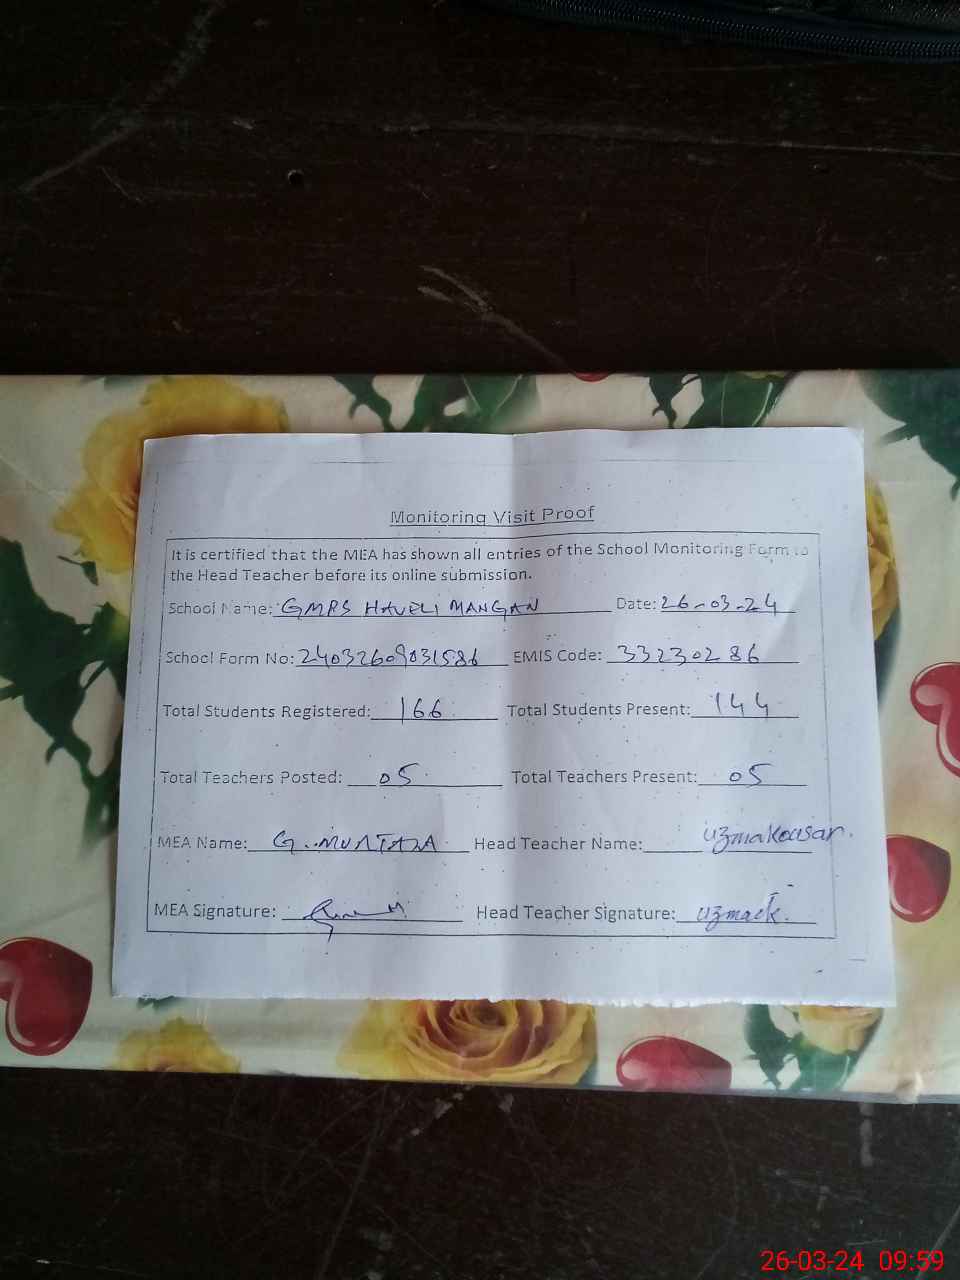 Monitoring Visit Proof
It is certified that the MEA has shown all entries of the School Monitoring Form to
the Head Teacher before its online submission.
School Name: GMPS HAVELI MANGAN Date: 26-03-24
School Form No: 24032609031586 EMIS Code: 33230286
Total Students Registered: 166 Total Students Present: 144
Total Teachers Posted: 05 Total Teachers Present: 05
MEA Name: G. MURTAZA Head Teacher Name: uzmakousar.
MEA Signature: Head Teacher Signature: uzmack.
26-03-24 09:59